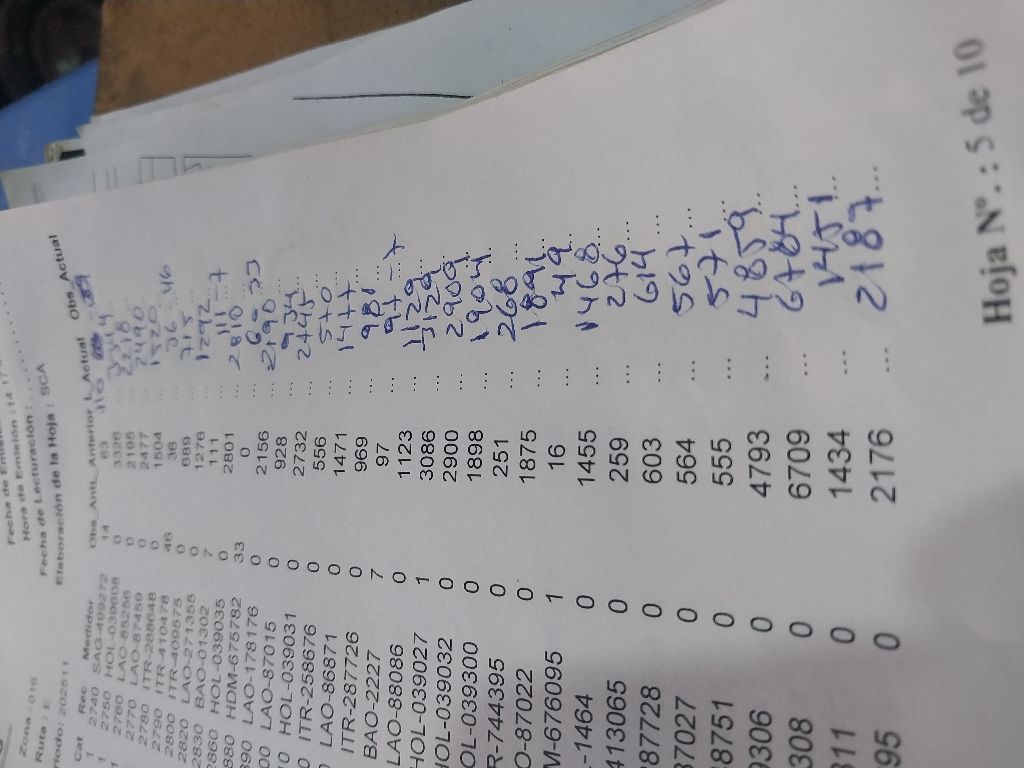 Fecha de Emisión :14
Hora de Emisión :
Zona :016 Fecha de Lecturación :
Ruta : E Elaboración de la Hoja : SCA
Periodo: 202511
Cat Rec Medidor Obs_Anti_ Anterior L_Actual Obs_Actual
1 2740 SAG-499272 14 83
1 2750 HOL-039608 0 3326
2760 LAO-85256 0 2195 2218
2770 LAO-87459 0 2477 2490
2780 ITR-288648 0 1504 1520
2790 ITR-410478 46 36 36 46
2800 ITR-409575 0 689 715
2820 LAO-271355 0 1276 1292
2830 BAO-01302 7 111 111 -7
2860 HOL-039035 0 2801 2810
2880 HDM-675782 33 0 33
LAO-178176 0 2156 2190
LAO-87015 0 928 934
HOL-039031 0 2732
ITR-258676 0 556 570
LAO-86871 0 1471 1477
ITR-287726 0 969 981
BAO-2227 7 97 97 -7
LAO-88086 0 1123 1129
HOL-039027 1 3086 3129
HOL-039032 0 2900 2909
OL-039300 0 1898 1904
R-744395 0 251 268
O-87022 0 1875 1891
M-676095 1 16 49
-1464 0 1455 1468
413065 0 259 276
87728 0 603 614
87027 0 564 567
8751 0 555 571
9306 0 4793 4859
308 0 6709 6784
811 0 1434 1451
95 0 2176 2187
Hoja Nº. : 5 de 10